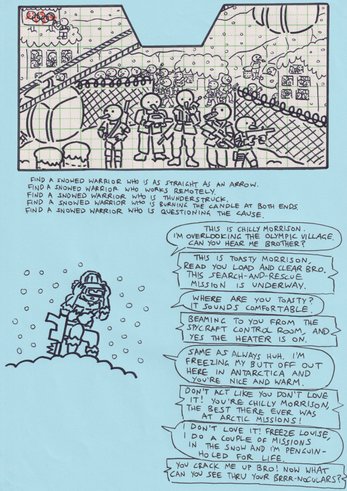 FIND A SNOWED WARRIOR WHO IS AS STRAIGHT AS AN ARROW.
FIND A SNOWED WARRIOR WHO WORKS REMOTELY.
FIND A SNOWED WARRIOR WHO IS THUNDERSTRUCK.
FIND A SNOWED WARRIOR WHO IS BURNING THE CANDLE AT BOTH ENDS.
FIND A SNOWED WARRIOR WHO IS QUESTIONING THE CAUSE.
THIS IS CHILLY MORRISON.
I'M OVERLOOKING THE OLYMPIC VILLAGE.
CAN YOU HEAR ME BROTHER?
THIS IS TOASTY MORRISON,
READ YOU LOAD AND CLEAR BRO.
THIS SEARCH-AND-RESCUE
MISSION IS UNDERWAY.
WHERE ARE YOU TOASTY?
IT SOUNDS COMFORTABLE.
BEAMING TO YOU FROM THE
SPYCRAFT CONTROL ROOM, AND
YES THE HEATER IS ON.
SAME AS ALWAYS HUH. I'M
FREEZING MY BUTT OFF OUT
HERE IN ANTARCTICA AND
YOU'RE NICE AND WARM.
DON'T ACT LIKE YOU DON'T LOVE
IT! YOU'RE CHILLY MORRISON,
THE BEST THERE EVER WAS
AT ARCTIC MISSIONS!
I DON'T LOVE IT! FREEZE LOUISE,
I DO A COUPLE OF MISSIONS
IN THE SNOW AND I'M PENGUIN-
HOLED FOR LIFE.
YOU CRACK ME UP BRO! NOW WHAT
CAN YOU SEE THRU YOUR BRRR-NOCULARS?